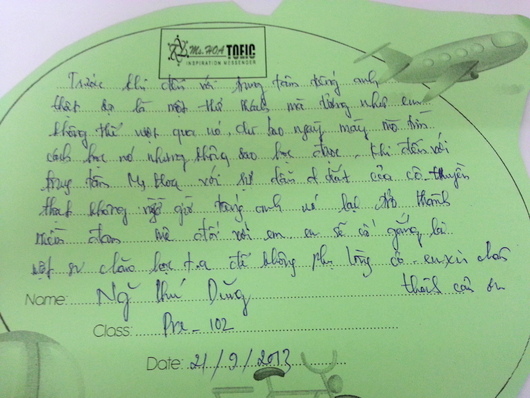 Ms. HOA TOEIC
INSPIRATION MESSENGER
Trước khi đến với trung tâm tiếng anh
thật sự là một thử thách mà dường như em
không thể vượt qua nó dù bao ngày mày mò tìm
cách học nó nhưng không sao học được. Khi đến với
trung tâm Ms Hoa với sự dẫn dắt của cô Huyền
thật không ngờ giờ tiếng anh nó lại trở thành
niềm đam mê đối với em em sẽ cố gắng là
một sư chăm học t.a để không phụ lòng cô em xin chân
thành cảm ơn
Name: Ng Phú Dũng
Class: Pre_102
Date: 21/9/2013